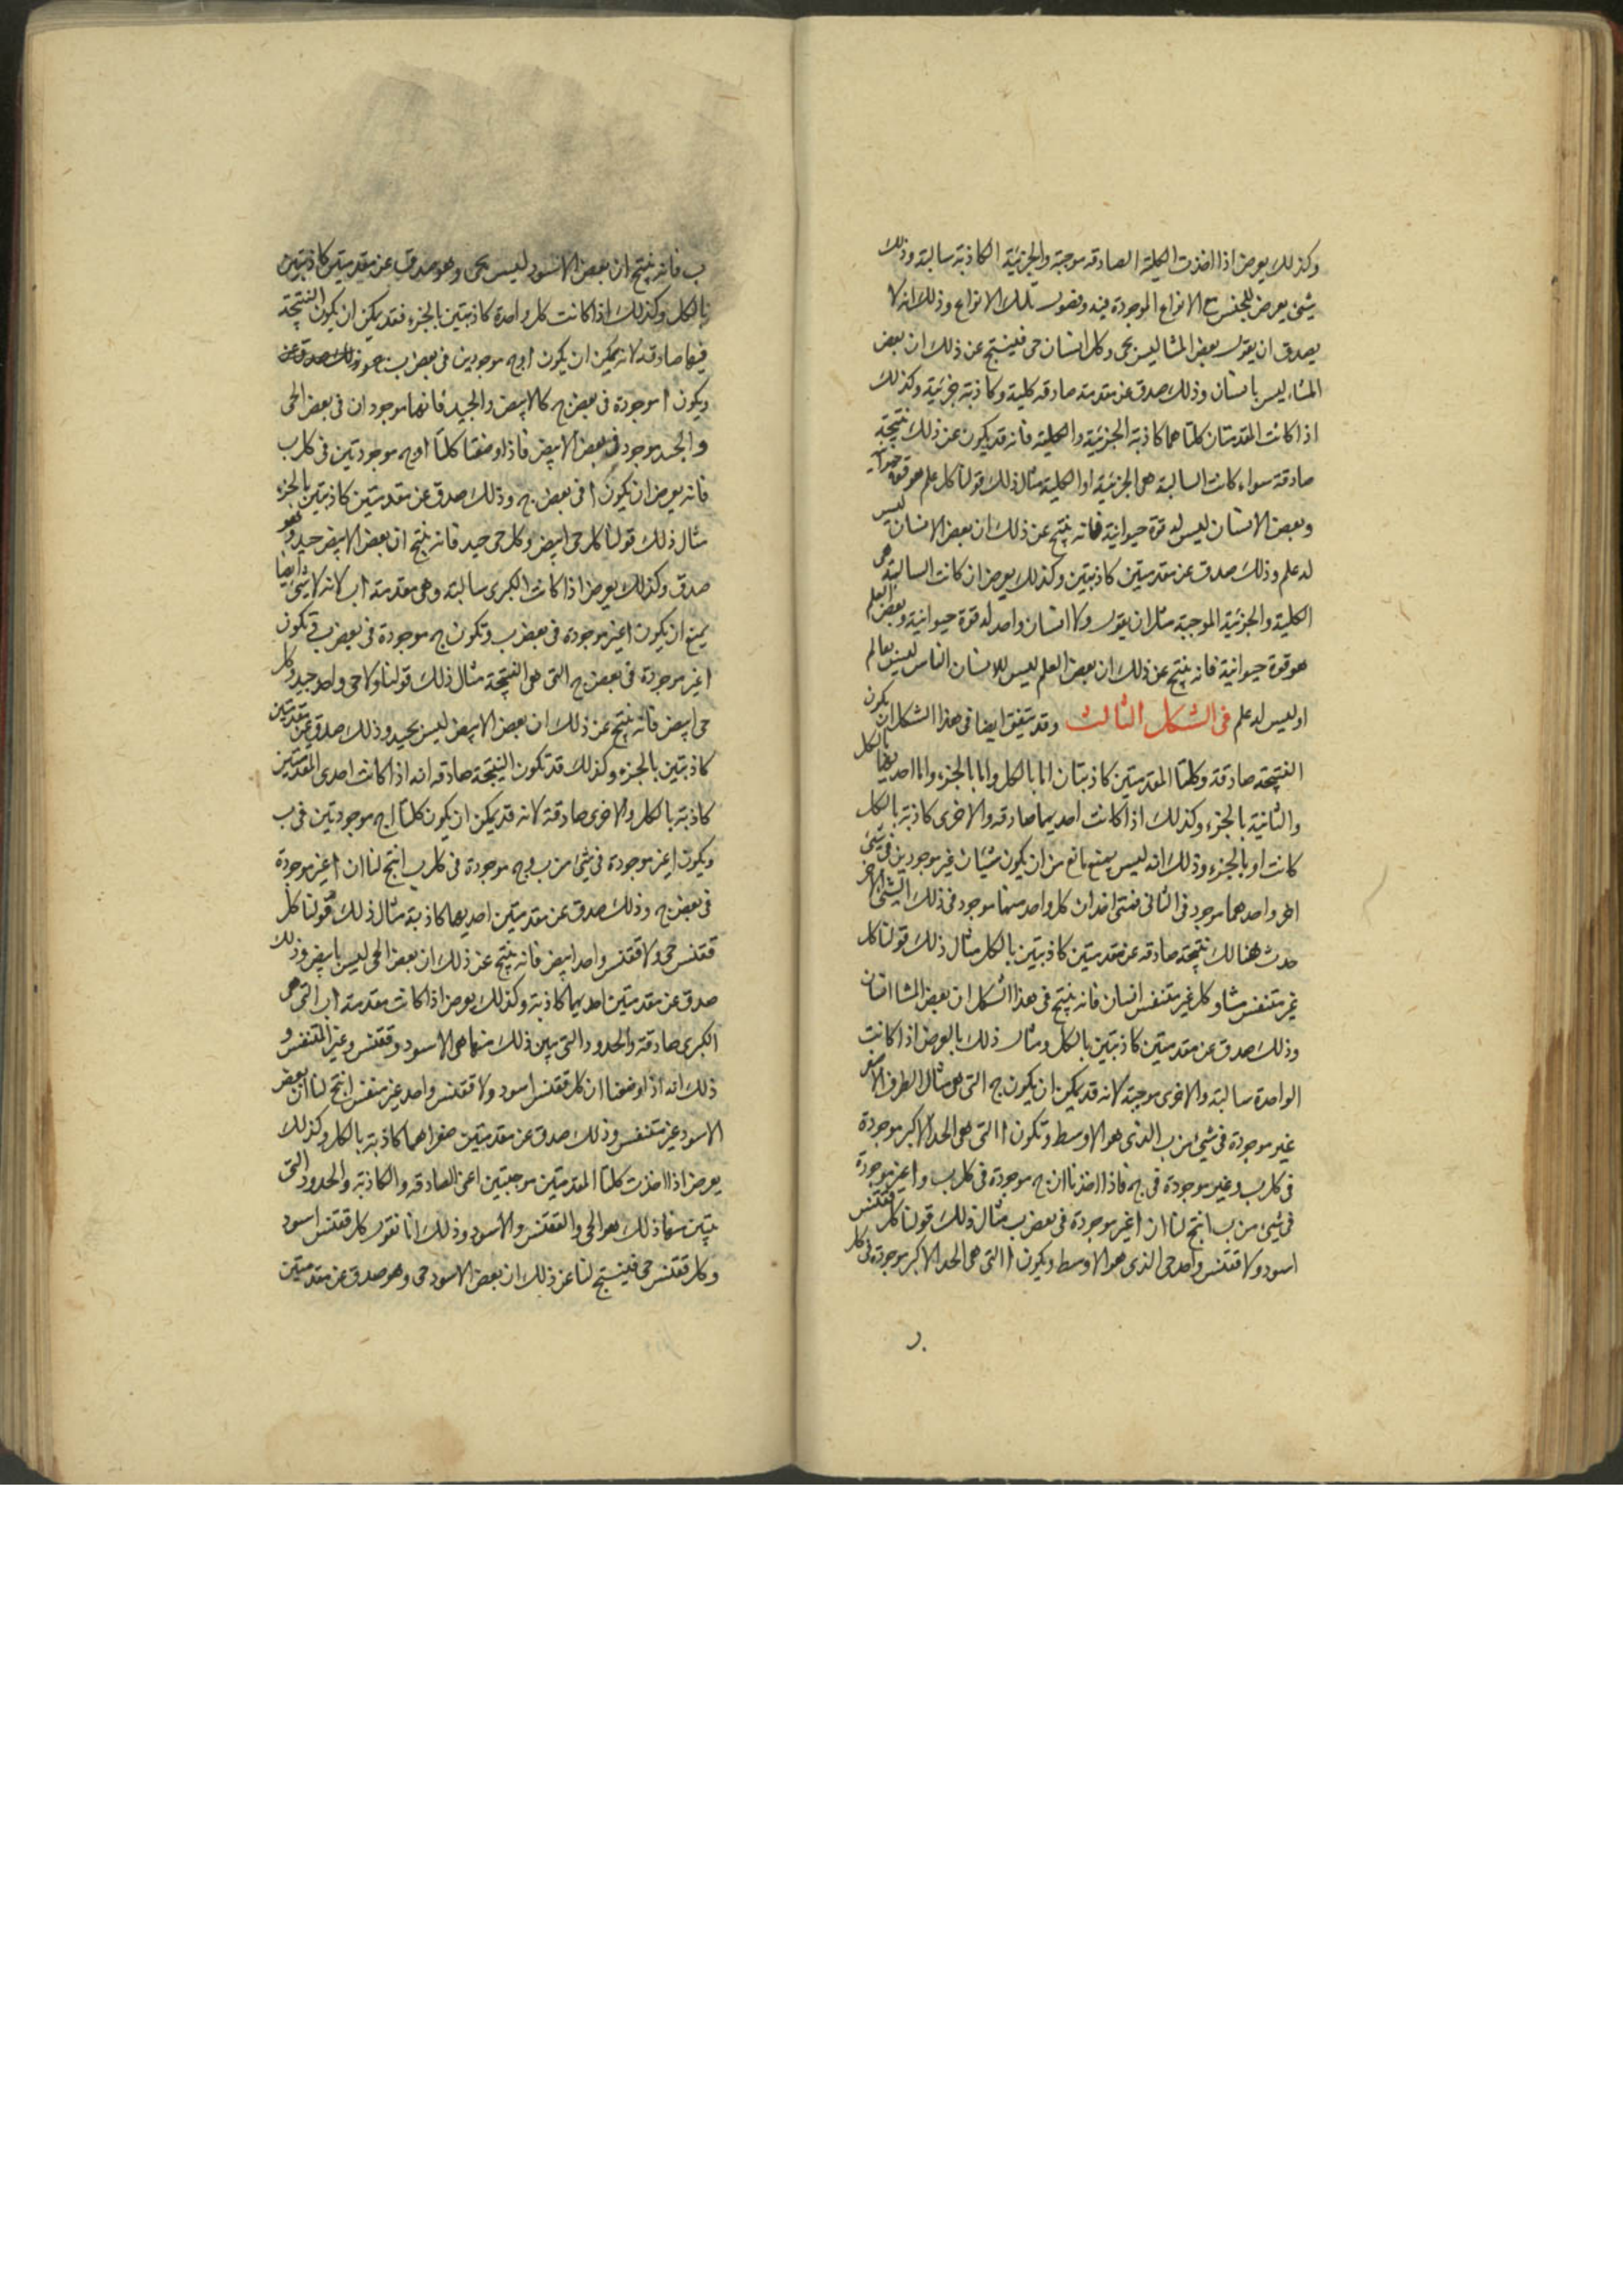 وكذلك يعرض اذا اخذت الكلية الصادقه موجبة والجزئية الكاذبة سالبة وذلك
شئ يعرض للجنس مع الانواع الموجودة فيه وفصول تلك الانواع وذلك انه لا
يصدق ان يقول بعض المشا ليس بحى وكل انسان حى فينتج عن ذلك ان بعض
المشاء ليس بانسان وذلك صدق عن مقدمة صادقه كلية وكاذبة جزئية وكذلك
اذا كانت المقدمتان كلتاهما كاذبة الجزئية والكلية فانه قد يكون عن ذلك نتيجة
صادقة سواء كانت السالبة هى الجزئية او الكلية مثال ذلك قولنا كل علم هو قوة حيوانية
وبعض الانسان ليس له قوة حيوانية فانه ينتج عن ذلك ان بعض الانسان ليس
له علم وذلك صدق عن مقدمتين كاذبتين وكذلك يعرض ان كانت السالبة هى
الكلية والجزئية الموجبة مثل ان يقول ولا انسان واحد له قوة حيوانية وبعض العلم
هو قوة حيوانية فانه ينتج عن ذلك ان بعض العلم ليس للانسان الناس ليس بعالم
او ليس له علم فى الشكل الثالث وقد يتفق ايضا فى هذا الشكل ان يكون
النتيجة صادقة وكلتا المقدمتين كاذبتان اما بالكل واما بالجزء واما احديهما بالكل
والثانية بالجزء وكذلك اذا كانت احديهما صادقه والاخرى كاذبة بالكل
كانت او بالجزء وذلك انه ليس يمنع مانع من ان يكون شيئان غير موجودين فى شئ
اخر واحدهما موجود فى الثانى فمتى اخذ ان كل واحد منهما موجود فى ذلك الشئ الاخر
حدث هنالك نتيجة صادقه عن مقدمتين كاذبتين بالكل مثال ذلك قولنا كل
غير متنفس مشا وكل غير متنفس انسان فانه ينتج فى هذا الشكل ان بعض المشا انسان
وذلك صدق عن مقدمتين كاذبتين بالكل ومثال ذلك بالعرض اذا كانت
الواحدة سالبة والاخرى موجبة لانه قد يمكن ان يكون ج التى هى مثال الطرف الاصغر
غير موجودة فى شئ من ب الذى هو الاوسط وتكون ا التى هى الحد الاكبر موجودة
فى كل ب وغير موجودة فى ج فاذا اخذنا ان ج موجودة فى كل ب وا غير موجودة
فى شئ من ب انتج لنا ان ا غير موجودة فى بعض ب مثال ذلك قولنا كل ققنس
اسود ولا ققنس واحد حى الذى هو الاوسط ويكون ا التى هى الحد الاكبر موجودة فى كل
ب فانه ينتج ان بعض الاسود ليس بحى وهو صدق عن مقدمتين كاذبتين
بالكل وكذلك اذا كانت كل واحدة كاذبتين بالجزء فقد يمكن ان يكون النتيجة
فيهما صادقه لانه يمكن ان يكون ا وج موجودين فى بعض ب
ويكون ا موجودة فى بعض ج كالابيض والجيد فانهما موجودان فى بعض الحى
والجيد موجود فى بعض الابيض فاذا وضعنا كلتا ا وج موجودتين فى كل ب
فانه يعرض ان يكون ا فى بعض ج وذلك صدق عن مقدمتين كاذبتين بالجزء
مثال ذلك قولنا كل حى ابيض وكل حى جيد فانه ينتج ان بعض الابيض جيد وهو
صدق وكذلك يعرض اذا كانت الكبرى سالبة وهى مقدمة اب لانه لا شئ ايضا
يمنع ان يكون ا غير موجودة فى بعض ب وتكون ج موجودة فى بعض ب فتكون
ا غير موجودة فى بعض ج التى هى النتيجة مثال ذلك قولنا ولا حى واحد جيد وكل
حى ابيض فانه ينتج عن ذلك ان بعض الابيض ليس بجيد وذلك صدق عن مقدمتين
كاذبتين بالجزء وكذلك قد تكون النتيجة صادقه انه اذا كانت احدى المقدمتين
كاذبة بالكل والاخرى صادقة لانه قد يمكن ان يكون كلتا اج موجودتين فى ب
ويكون ا غير موجودة فى شئ من ب وج موجودة فى كل ب انتج لنا ان ا غير موجودة
فى بعض ج وذلك صدق عن مقدمتين احديهما كاذبة مثال ذلك قولنا كل
ققنس حى ولا ققنس واحد ابيض فانه ينتج عن ذلك ان بعض الحى ليس بابيض وذلك
صدق عن مقدمتين احديهما كاذبة وكذلك يعرض اذا كانت مقدمة اب التى هى
الكبرى صادقة والحدود التى يبين ذلك منها هى الاسود وققنس وغير المتنفس و
ذلك انه اذا وضعنا ان كل ققنس اسود ولا ققنس واحد غير متنفس انتج لنا ان بعض
الاسود غير متنفس وذلك صدق عن مقدمتين صغراهما كاذبة بالكل وكذلك
يعرض اذا اخذت كلتا المقدمتين موجبتين اعنى الصادقه والكاذبة والحدود التى
يتبين منها ذلك هو الحى والققنس والاسود وذلك انا نقول كل ققنس اسود
وكل ققنس حى فينتج لنا عن ذلك ان بعض الاسود حى وهو صدق عن مقدمتين